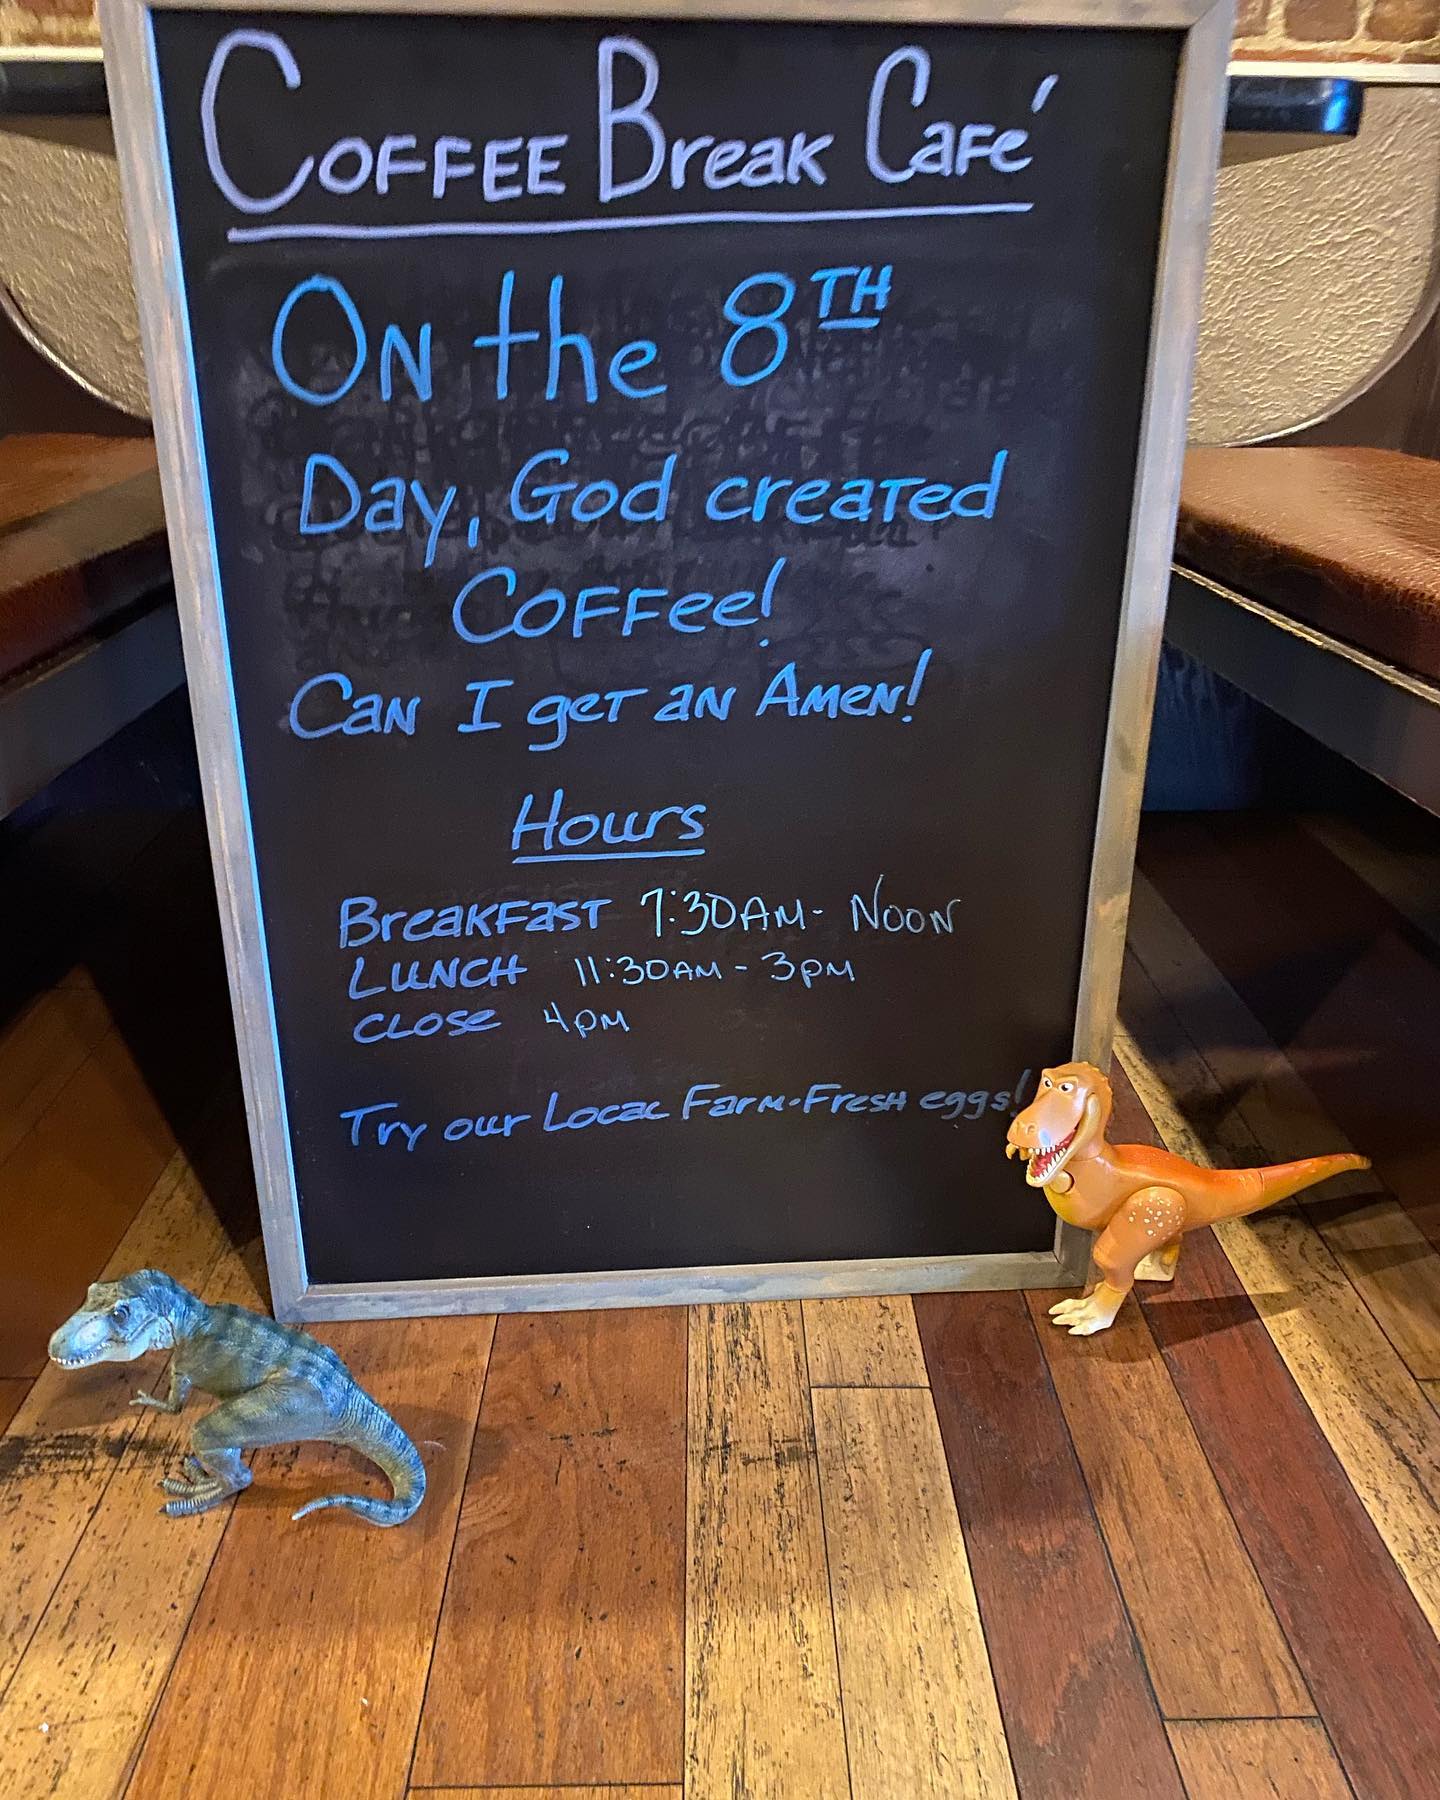 Coffee Break Café
On the 8TH
Day, God created
Coffee!
Can I get an Amen!
Hours
Breakfast 7:30AM- Noon
Lunch 11:30AM - 3pm
close 4pm
Try our Local Farm-Fresh eggs!